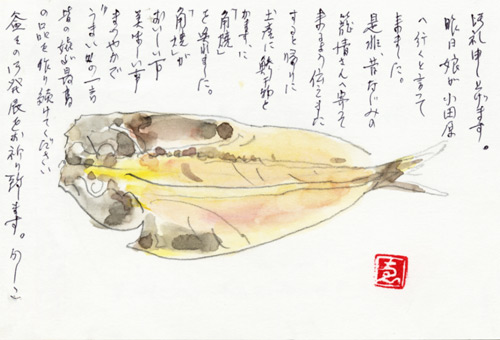 御礼申し上げます。
昨日娘が小田原
へ行くと言って
来ました。
是非、昔なじみの
籠清さんへ寄って
来るよう伝えました
すると帰りに
土産に鯵の
「角焼」
を
「角焼」が
おいしい事
美味しい事
まろやかで
"うまい"の一言
皆の様が最高
の品を作り続けてください
益々の御発展をお祈り致します。かしこ
ゑ